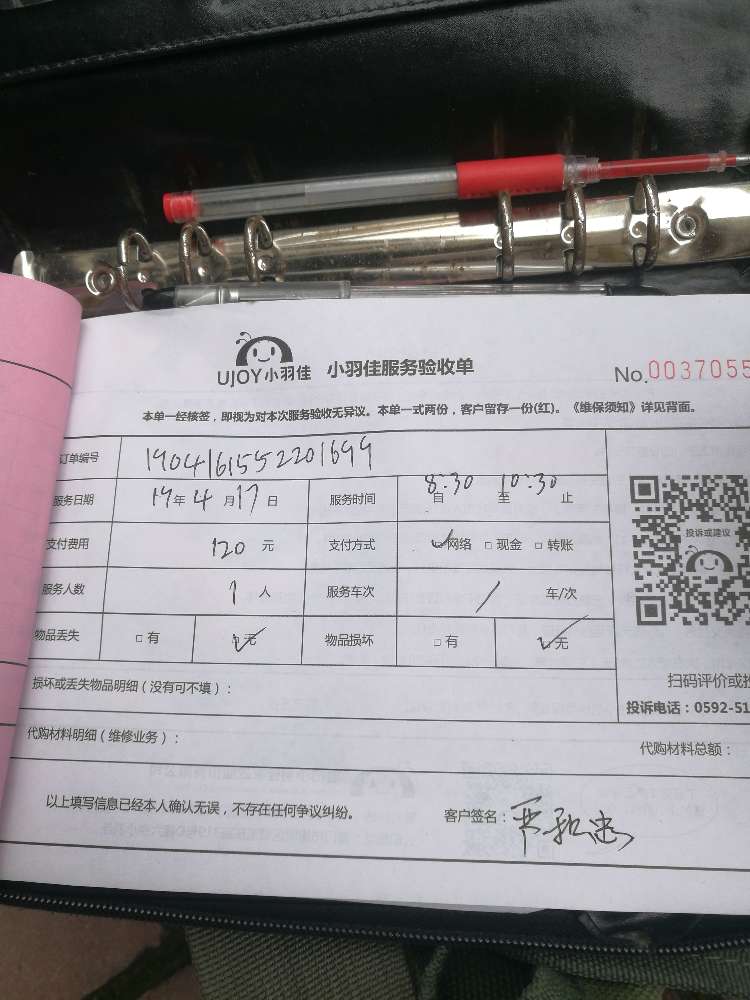 UJOY小羽佳 小羽佳服务验收单 No.0037055
本单一经核签，即视为对本次服务验收无异议。本单一式两份，客户留存一份(红)。《维保须知》详见背面。
订单编号 1904161552201699
服务日期 19年4月17日 服务时间 自8:30至10:30止
支付费用 120元 支付方式 ☑网络 □现金 □转账
服务人数 1人 服务车次 / 车/次
物品丢失 □有 ☑无 物品损坏 □有 ☑无
投诉或建议
损坏或丢失物品明细(没有可不填)：
扫码评价或投
投诉电话：0592-51
代购材料明细(维修业务)：
代购材料总额：
以上填写信息已经本人确认无误，不存在任何争议纠纷。 客户签名：